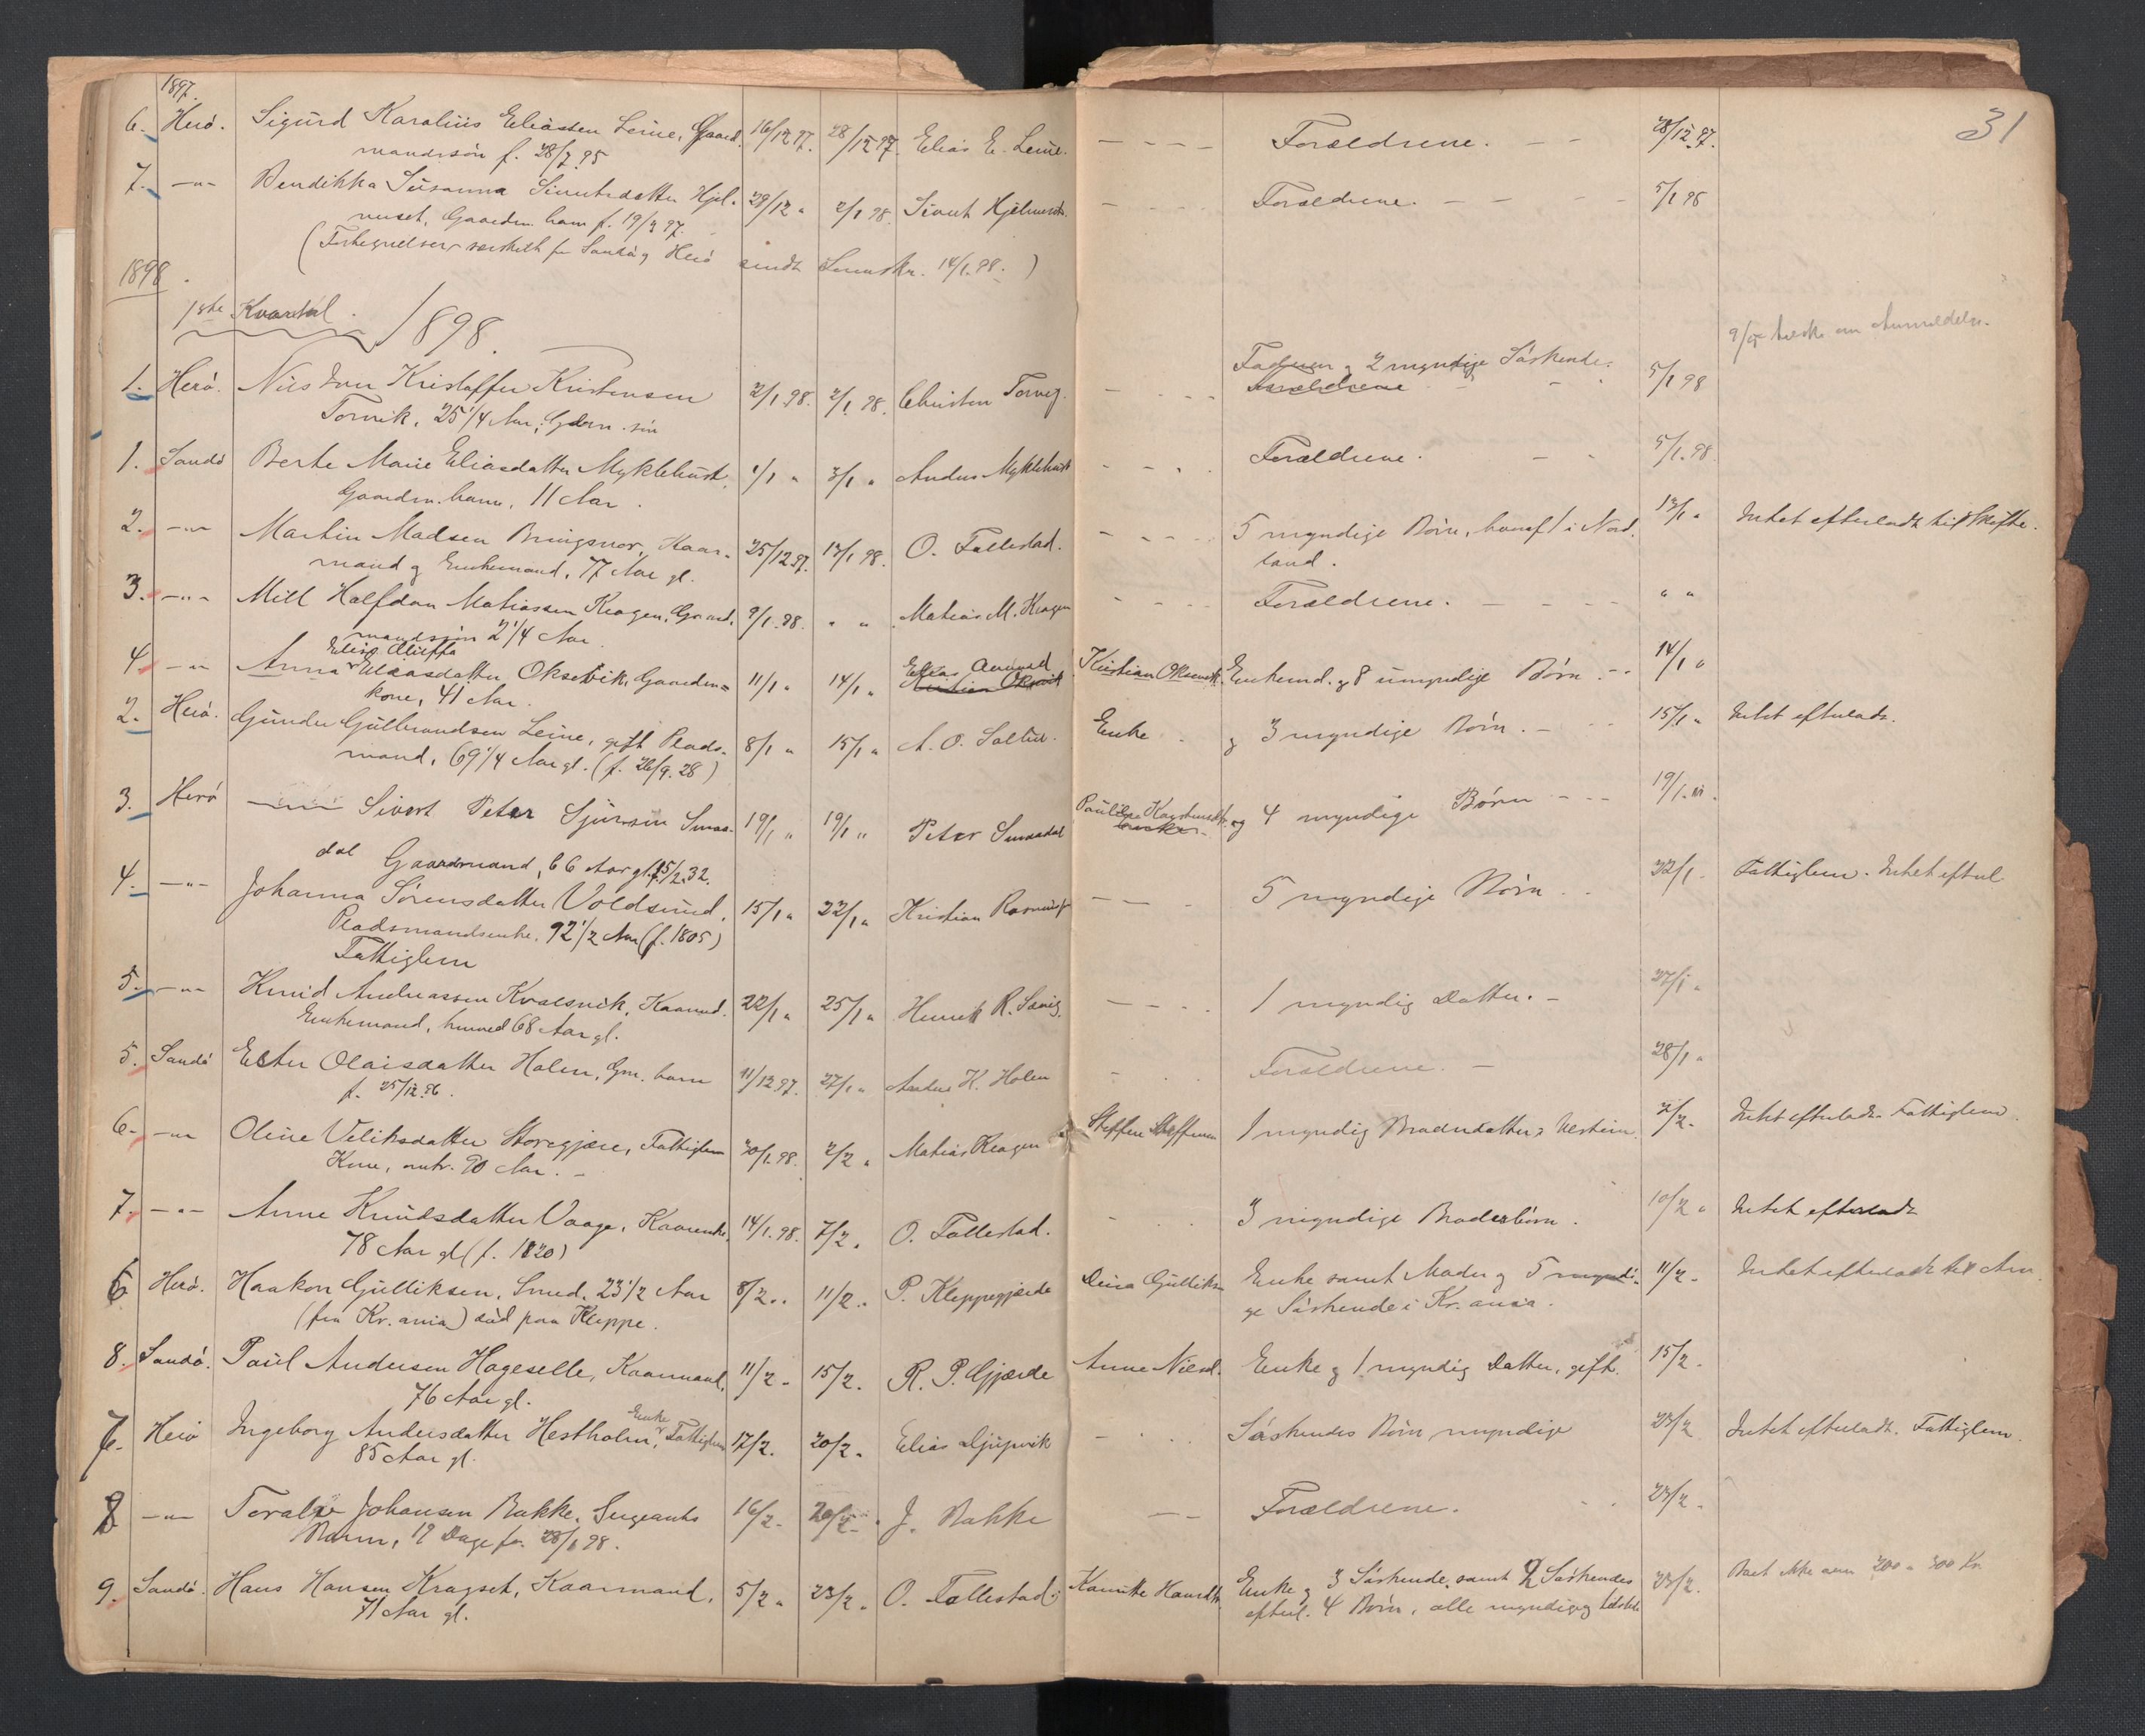 1897.
31
6. Herø. Sigurd Karolius Eliassen Leine, Gaard- 16/12 97. 28/12 97. Elias E. Leine. – – – – Forældrene. – – 28/12 97.
mandssøn f. 28/7 95
7. –"– Bendikka Susanna Sivertsdatter Hjel- 29/12 " 2/1 98. Sivert Hjelmeseth. – – – Forældrene. – – – 5/1 98
meset, Gaardm. barn f. 19/3 97.
(Fortegnelser særskilt for Sandø og Herø sendt Sorenskr. 14/1 98.)
1898.
1ste Kvartal. 1898.
9/5 om Anmeldelse.
Faderen og 2 myndige Søskende.
1. Herø. Nils Kristoffer Kristensen 2/1 98. 2/1 98. Christen Torvig. – – – – Forældrene – 5/1 98
Torvik, 25 1/4 Aar, Gdm. søn
1. Sandø Berte Marie Eliasdatter Myklebust, 1/1 " 3/1 " Anders Myklebust – – – Forældrene. – – 5/1 98.
Gaardm. barn, 11 Aar.
2. –"– Martin Madsen Bringsvor, Kaar- 25/12 97. 13/1 98. O. Fallestad. – – – – 5 myndige Børn, hvoraf 1 i Nord- 13/1 " Intet efterladt til Skifte.
mand og Enkemand, 77 Aar gl. land.
3. –"– Mill Halfdan Matiassen Kragen, Gaard- 9/1 98. " " Matias M. Kragen – – – – Forældrene. – – – – " "
mandssøn 2 1/4 Aar
4. –"– Anna Eliasdatter Oksevik, Gaardm- 11/1 " 14/1 " Elias Aamund Kristian Oksevik Kristian Oksevik. Enkemd. og 8 umyndige Børn – – 14/1 "
kone, 41 Aar.
2. Herø. Gunder Gulbrandsen Leine, gift Plads- 8/1 " 15/1 " A. O. Enke og 3 myndige Børn. – – 15/1 " Intet efterladt.
mand, 69 1/4 Aar gl. (f. 26/9 28)
3. Herø Sivert Peter Sjursen Smaa- 19/1 " 19/1 " Peter Smaadal Pauline og 4 myndige Børn – – – 19/1 "
dal Gaardmand, 66 Aar gl. f. 15/2 32.
4. –"– Johanna Sørensdatter Voldsund, 15/1 " 22/1 " Kristian – – – 5 myndige Børn – – 22/1 – Fattiglem. Intet efterl
Pladsmandsenke, 92 1/2 Aar (f. 1805)
Fattiglem
5. –"– Knud Andreassen Kvalsvik, Kaarmd. 22/1 " 25/1 " Henrik R. – – – 1 myndig Datter. – 27/1 "
Enkemand, henved 68 Aar gl.
5. Sandø Ester Olaisdatter Holen, Gm. barn 11/12 97. 27/1 " Andreas K. Holen – – Forældrene. – 28/1 "
f. 25/12 96.
6. –"– Oline Veliksdatter Storegjære, Fattiglem 30/1 98. 2/2 " Matias Kragen Steffen Steffensen 1 myndig Broderdatter 2/2 – Intet efterladt. Fattiglem.
Kone, omtr. 90 Aar. –
7. –"– Anne Knudsdatter Vaage, Kaarenke, 14/1 98. 7/2 " O. Fallestad. – – 3 myndige Broderbørn. 10/2 " Intet efterladt
78 Aar gl (f. 1820)
6 Herø. Haakon Gulliksen, Smed, 23 1/2 Aar 8/2 " 11/2 " P. Kleppegjærde Dina Gulliksen Enke samt Moder og 5 myndi- 11/2 – Intet efterladt
(fra Kr.ania) død paa Kleppe. ge Søskende i Kr.ania.
8. Sandø. Paul Andersen Hageselle, Kaarmand, 11/2 – 15/2 – R. P. Gjærde Anne Nilsd. Enke og 1 myndig Datter, gift. 15/2 –
76 Aar gl.
7. Herø Ingeborg Andersdatter Hestholm, Enke Fattiglem 17/2. 20/2 – Elias Djupvik – – – Søskendes Børn myndige 23/2 Intet efterladt. Fattiglem.
85 Aar gl.
8 –"– Johansen Bakke, Sergeants 16/2 – 20/2 – J. Bakke – – Forældrene. – – 23/2 –
Barn, 19 Dage f. 28/1 98.
9. Sandø. Hans Hansen Kragset, Kaarmand, 5/2 " 23/2 " O. Fallestad. Hansdtr. Enke og 3 Søskende, samt 2 Søskendes 23/2 – Boet ikke over 200 a 300 Kr.
71 Aar gl. efterl. 4 Børn, alle myndige og